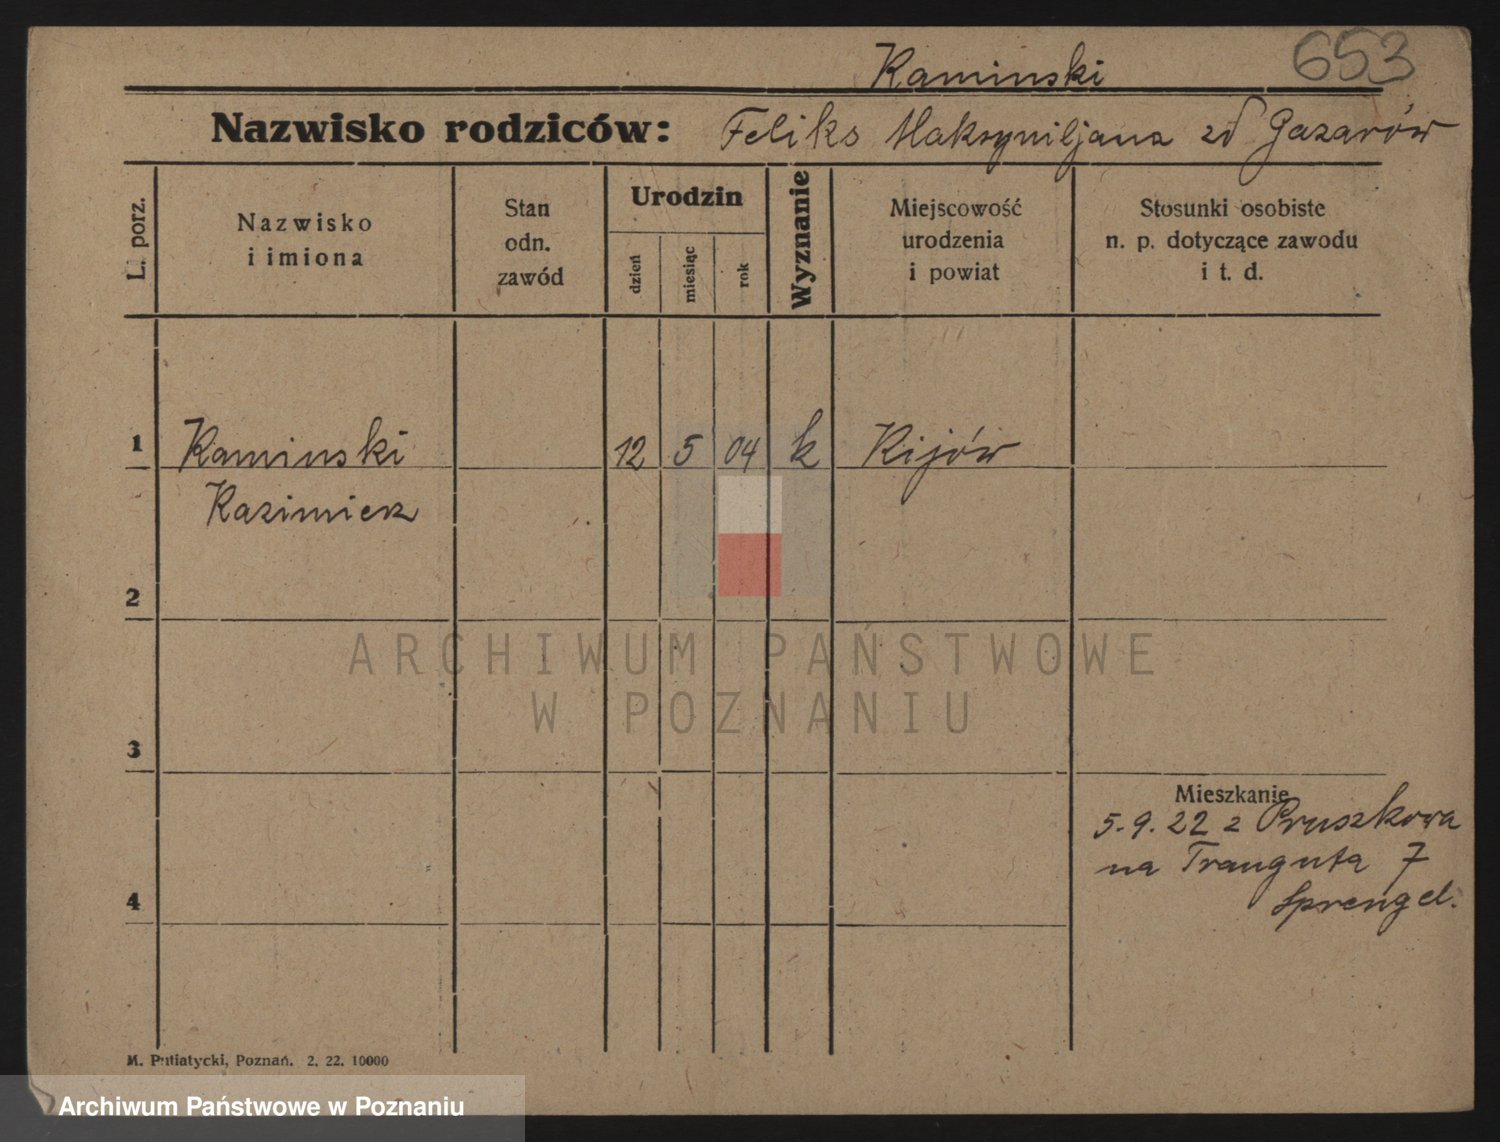 653
Kaminski
Nazwisko rodziców: Feliks Maksymiljana zd Gazarów
L. porz.
Nazwisko
i imiona
Stan
odn.
zawód
Urodzin
dzień
miesiąc
rok
Wyznanie
Miejscowość
urodzenia
i powiat
Stosunki osobiste
n. p. dotyczące zawodu
i t. d.
1 Kaminski 12 5 04 k Kijów
Kazimierz
2
ARCHIWUM PAŃSTWOWE
W POZNANIU
3
Mieszkanie
5.9.22 z Pruszkowa
na Trauguta 7
Sprengel.
4
M. Putiatycki, Poznań. 2. 22. 10000
Archiwum Państwowe w Poznaniu